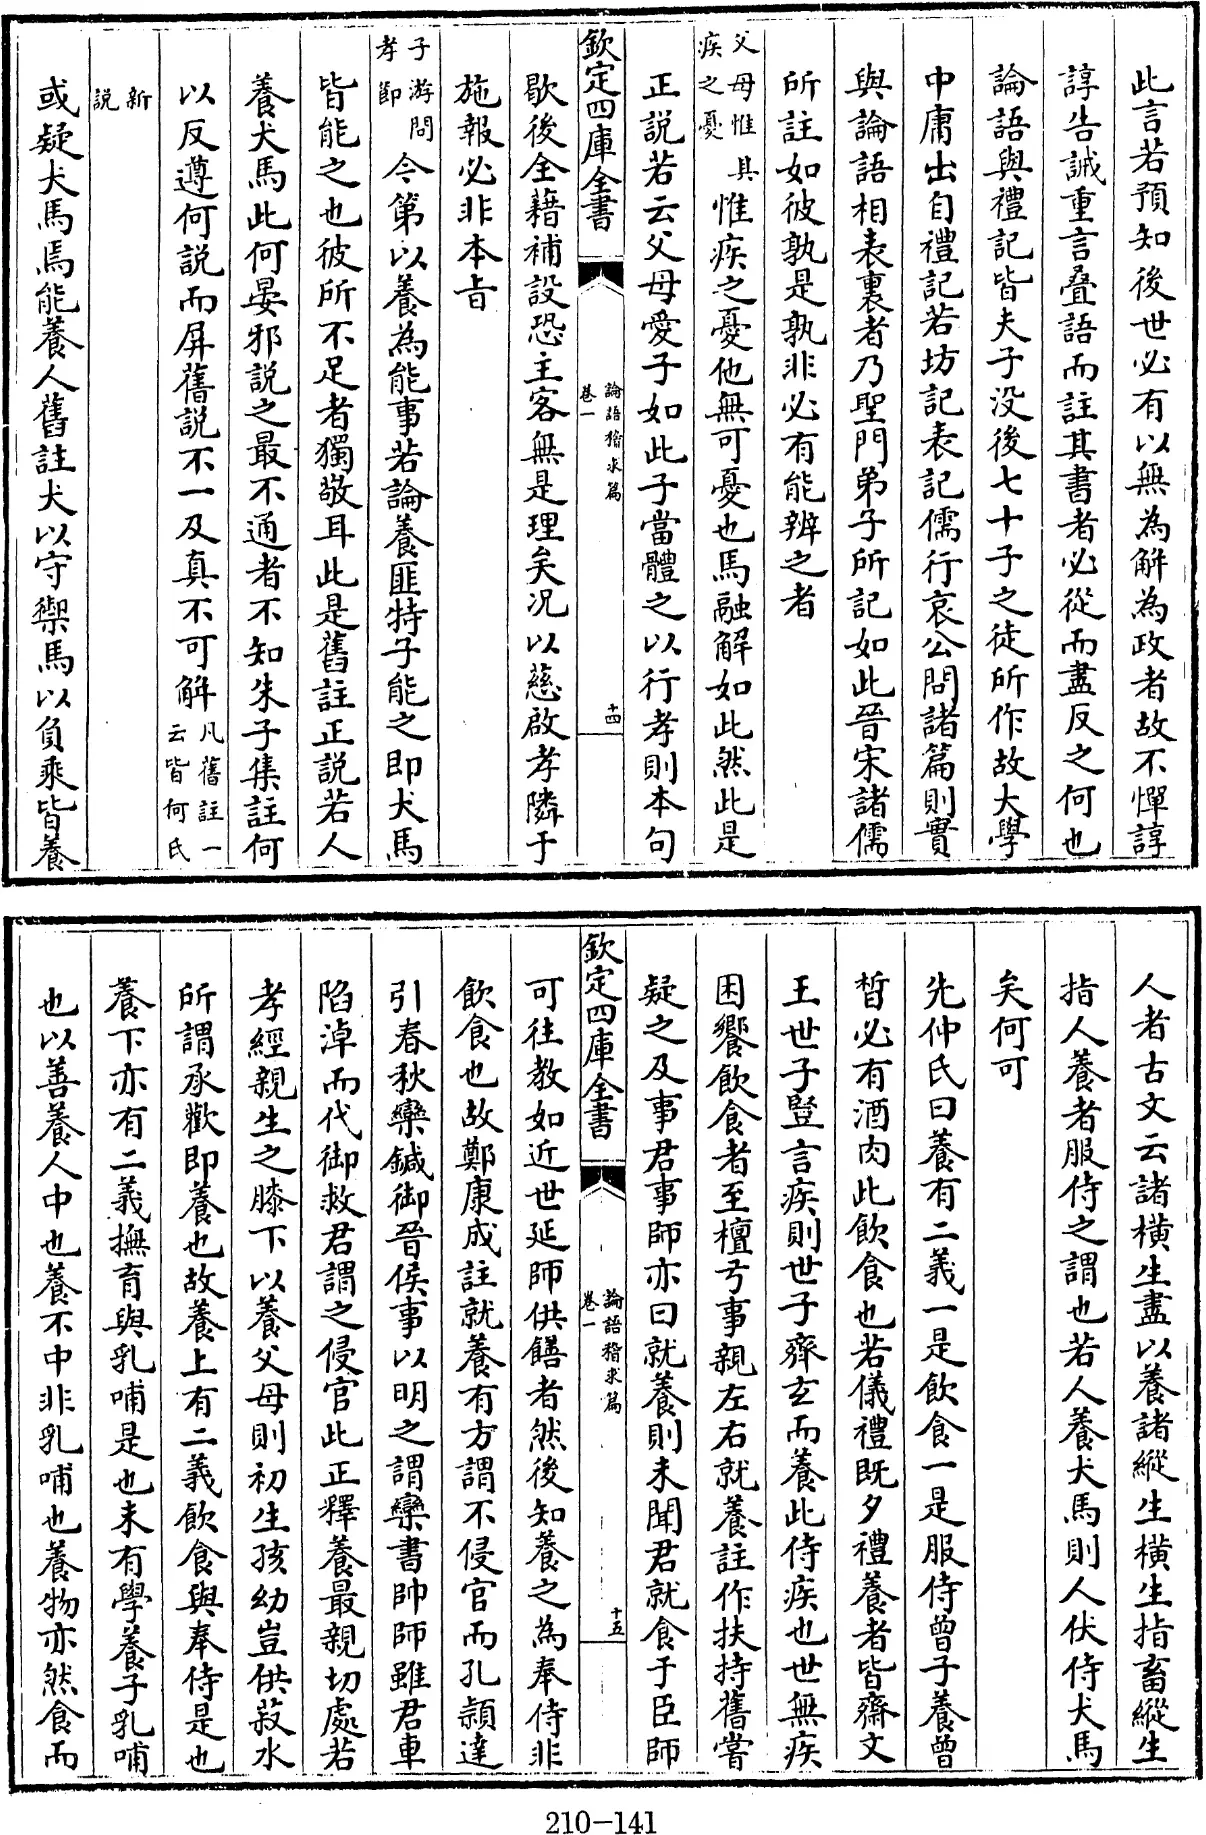 此言若預知後世必有以無為解為政者故不憚諄
諄告誡重言疊語而註其書者必從而盡反之何也
論語與禮記皆夫子没後七十子之徒所作故大學
中庸出自禮記若坊記表記儒行哀公問諸篇則實
與論語相表裏者乃聖門弟子所記如此晉宋諸儒
所註如彼孰是孰非必有能辨之者
父母惟其
疾之憂
惟疾之憂他無可憂也馬融解如此然此是
正説若云父母愛子如此子當體之以行孝則本句
欽定四庫全書
論語稽求篇
卷一
十四
歇後全藉補設恐主客無是理矣况以慈啟孝隣于
施報必非本㫖
子游問
孝節
今第以養為能事若論養匪特子能之即犬馬
皆能之也彼所不足者獨敬耳此是舊註正説若人
養犬馬此何晏邪説之最不通者不知朱子集註何
以反遵何説而屏舊説不一及真不可解
凡舊註一
云皆何氏
新
説
或疑犬馬焉能養人舊註犬以守禦馬以負乘皆養
人者古文云諸橫生盡以養諸縱生橫生指畜縱生
指人養者服侍之謂也若人養犬馬則人伏侍犬馬
矣何可
先仲氏曰養有二義一是飲食一是服侍曾子養曾
晳必有酒肉此飲食也若儀禮既夕禮養者皆齋文
王世子豎言疾則世子齊玄而養此侍疾也世無疾
困饗飲食者至檀弓事親左右就養註作扶持舊嘗
疑之及事君事師亦曰就養則未聞君就食于臣師
欽定四庫全書
論語稽求篇
卷一
十五
可往教如近世延師供饍者然後知養之為奉侍非
飲食也故鄭康成註就養有方謂不侵官而孔頴達
引春秋欒鍼御晉侯事以明之謂欒書帥師雖君車
陷淖而代御救君謂之侵官此正釋養最親切處若
孝經親生之膝下以養父母則初生孩幼豈供菽水
所謂承歡即養也故養上有二義飲食與奉侍是也
養下亦有二義撫育與乳哺是也未有學養子乳哺
也以善養人中也養不中非乳哺也養物亦然食而
210-141